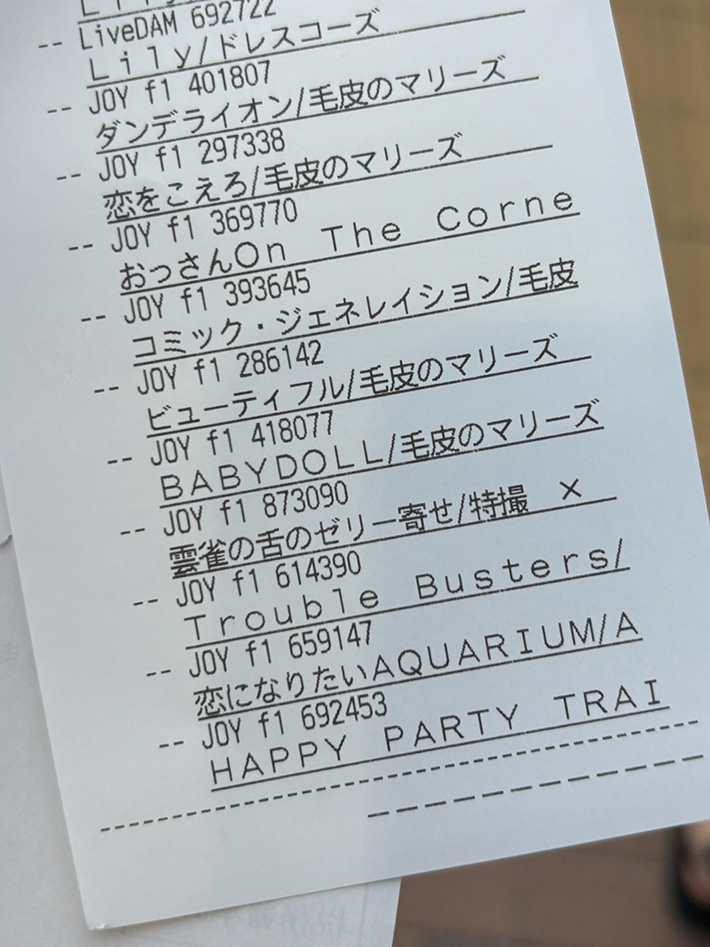 -- LiveDAM 692722
Lily/ドレスコーズ
-- JOY f1 401807
ダンデライオン/毛皮のマリーズ
-- JOY f1 297338
恋をこえろ/毛皮のマリーズ
-- JOY f1 369770
おっさんOn The Corne
-- JOY f1 393645
コミック・ジェネレイション/毛皮
-- JOY f1 286142
ビューティフル/毛皮のマリーズ
-- JOY f1 418077
BABYDOLL/毛皮のマリーズ
-- JOY f1 873090
雲雀の舌のゼリー寄せ/特撮 ×
-- JOY f1 614390
Trouble Busters/
-- JOY f1 659147
恋になりたいAQUARIUM/A
-- JOY f1 692453
HAPPY PARTY TRAI